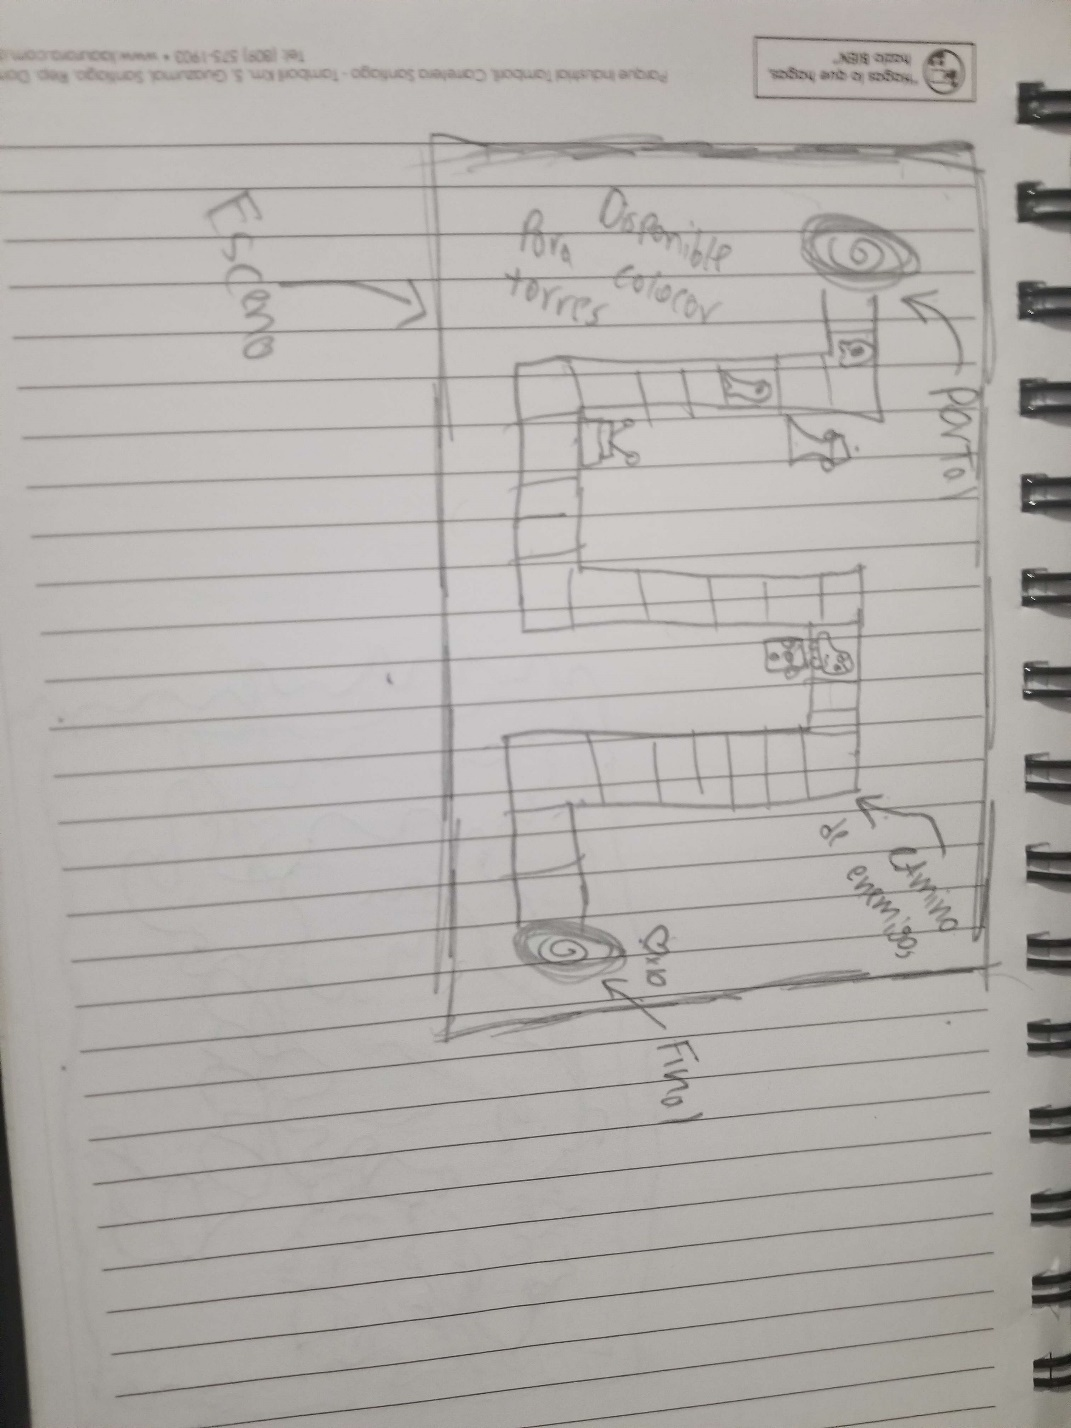 "Hagas lo que hagas,
hazlo BIEN"
Parque Industrial Tamboril, Carretera Santiago - Tamboril Km 5, Guazumal, Santiago, Rep. Dom
Tel: (809) 575-1903 • www.laaurora.com
Escena
Disponible
Para colocar
torres
Portal
Camino
de enemigos
x10
Final